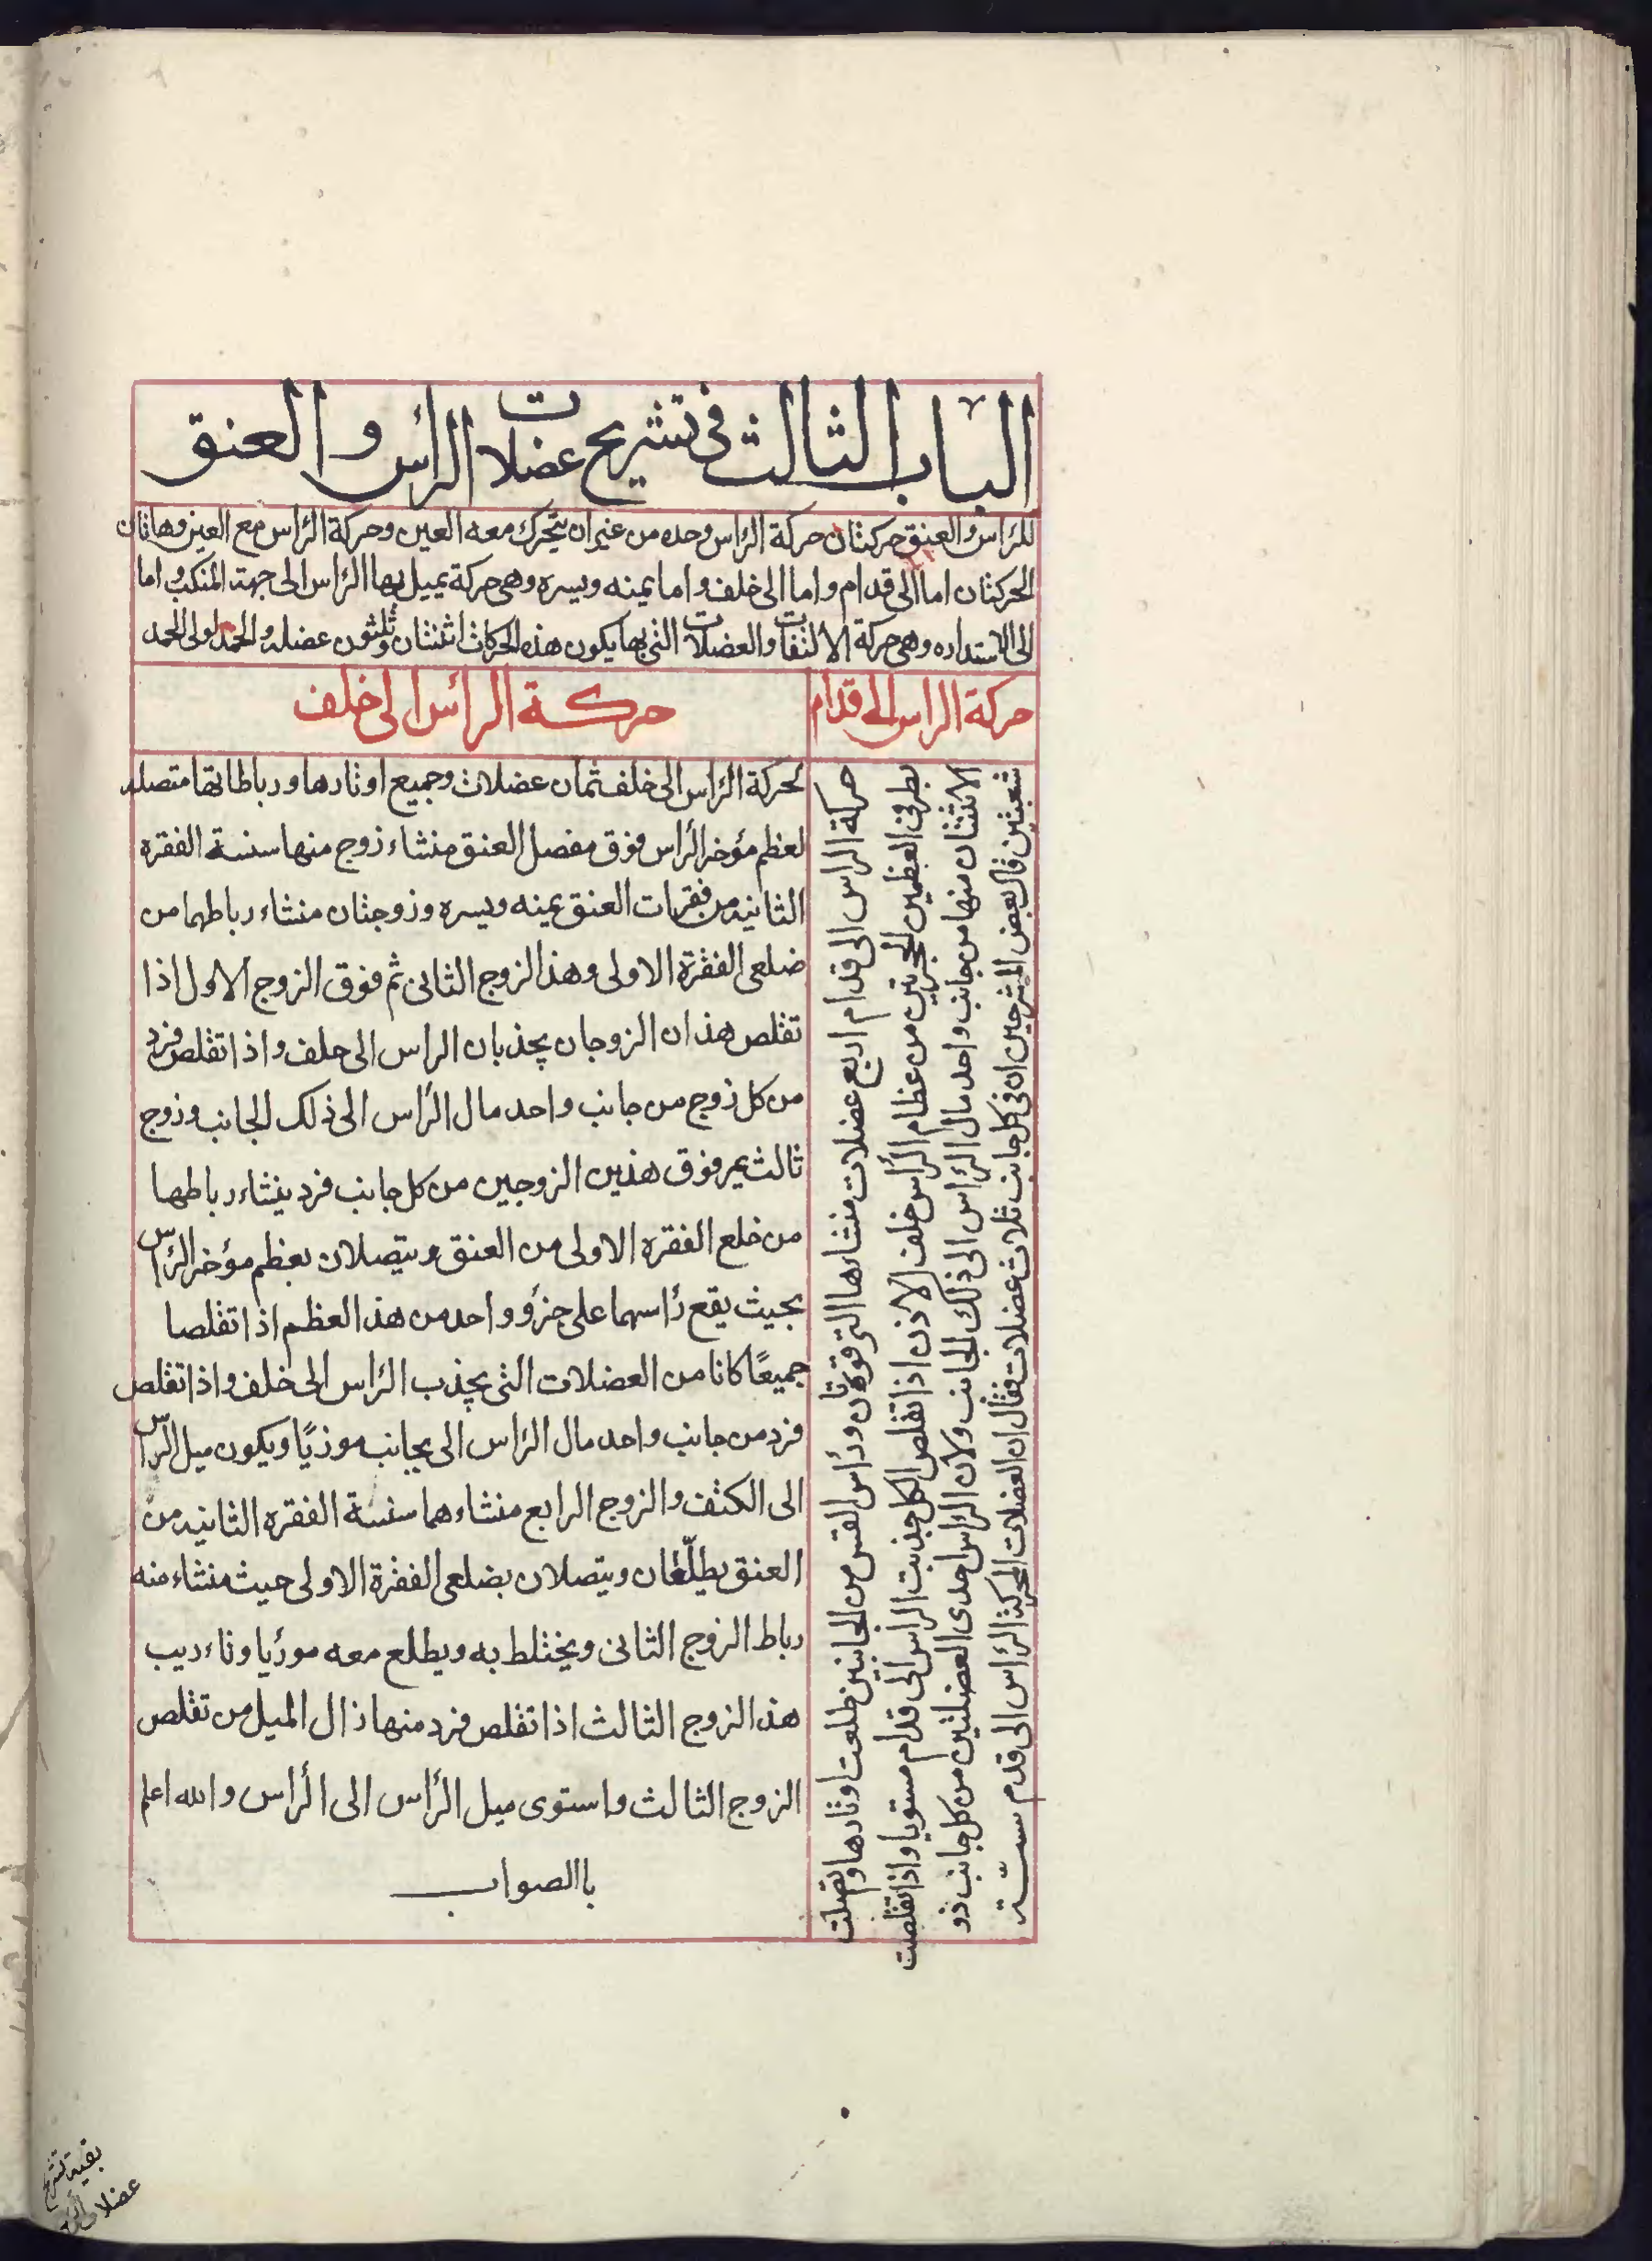 الباب الثالث في تشريح عضلات الرأس و العنق
للرأس والعنق حركتان حركة الرأس وحده من غير ان يتحرك معه العين وحركة الرأس مع العين وهاتان
الحركتان اما الى قدام واما الى خلف واما يمنه ويسره وهى حركة يميل بها الرأس الى جهة المنكب و اما
الى الاستداره وهى حركة الالتفات والعضلات التى بها يكون هذه الحركات اثنتان وثلثون عضله والحمد لولى الحمد
حركة الراس الى قدام
حركة الرأس الى خلف
حركة الراس الى قدام اربع عضلات منشاءها الترقوتان ورأس القس من الجانبين طلعت اوتادها واتصلت
بطرفى العظمين الحجريين من عظام الرأس خلف الاذن اذا تقلص الكل جذبت الراس الى قدام مستويا واذا تقلصت
الاثنتان منها من جانب واحد مال الرأس الى ذلك الجانب ولان الرأس احدى العضلتين من كل جانب ذو
شعبتين قال بعض المشرحين ان فى كل جانب ثلاث عضلات فقال ان العضلات المحركة الرأس الى قدم ستة
لحركة الرأس الى خلف ثمان عضلات وجميع اوتادها ورباطاتها متصله
لعظم مؤخر الرأس فوق مفصل العنق منشاء زوج منها سنسة الفقره
الثانيه من فقرات العنق يمينه ويسره وزوجتان منشاء رباطهما من
ضلعى الفقرة الاولى وهذا الزوج الثانى ثم فوق الزوج الاول اذا
تقلص هذان الزوجان يجذبان الراس الى خلف واذا تقلص فرد
من كل زوج من جانب واحد مال الرأس الى ذلك الجانب وزوج
ثالث يمر فوق هذين الزوجين من كل جانب فرد ينشاء رباطها
من خلع الفقره الاولى من العنق ويتصلان بعظم مؤخر الرأس
بحيث يقع رأسهما على جزؤ واحد من هذ العظم اذا تقلصا
جميعًا كانا من العضلات التى يجذب الرأس الى خلف واذا تقلص
فرد من جانب واحد مال الرأس الى بجانب موذيًا ويكون ميل الرأس
الى الكتف والزوج الرابع منشاءهما سنسة الفقره الثانيه من
العنق يطلّعان ويتصلان بضلعى الفقرة الاولى حيث منشاء منه
رباط الزوج الثانى ويختلط به ويطلع معه مورُيا وتاءديب
هذ الزوج الثالث اذا تقلص فرد منها زال الميل من تقلص
الزوج الثالث واستوى ميل الرأس الى الرأس والله اعلم
باالصواب
بقية تشريح
عضلات